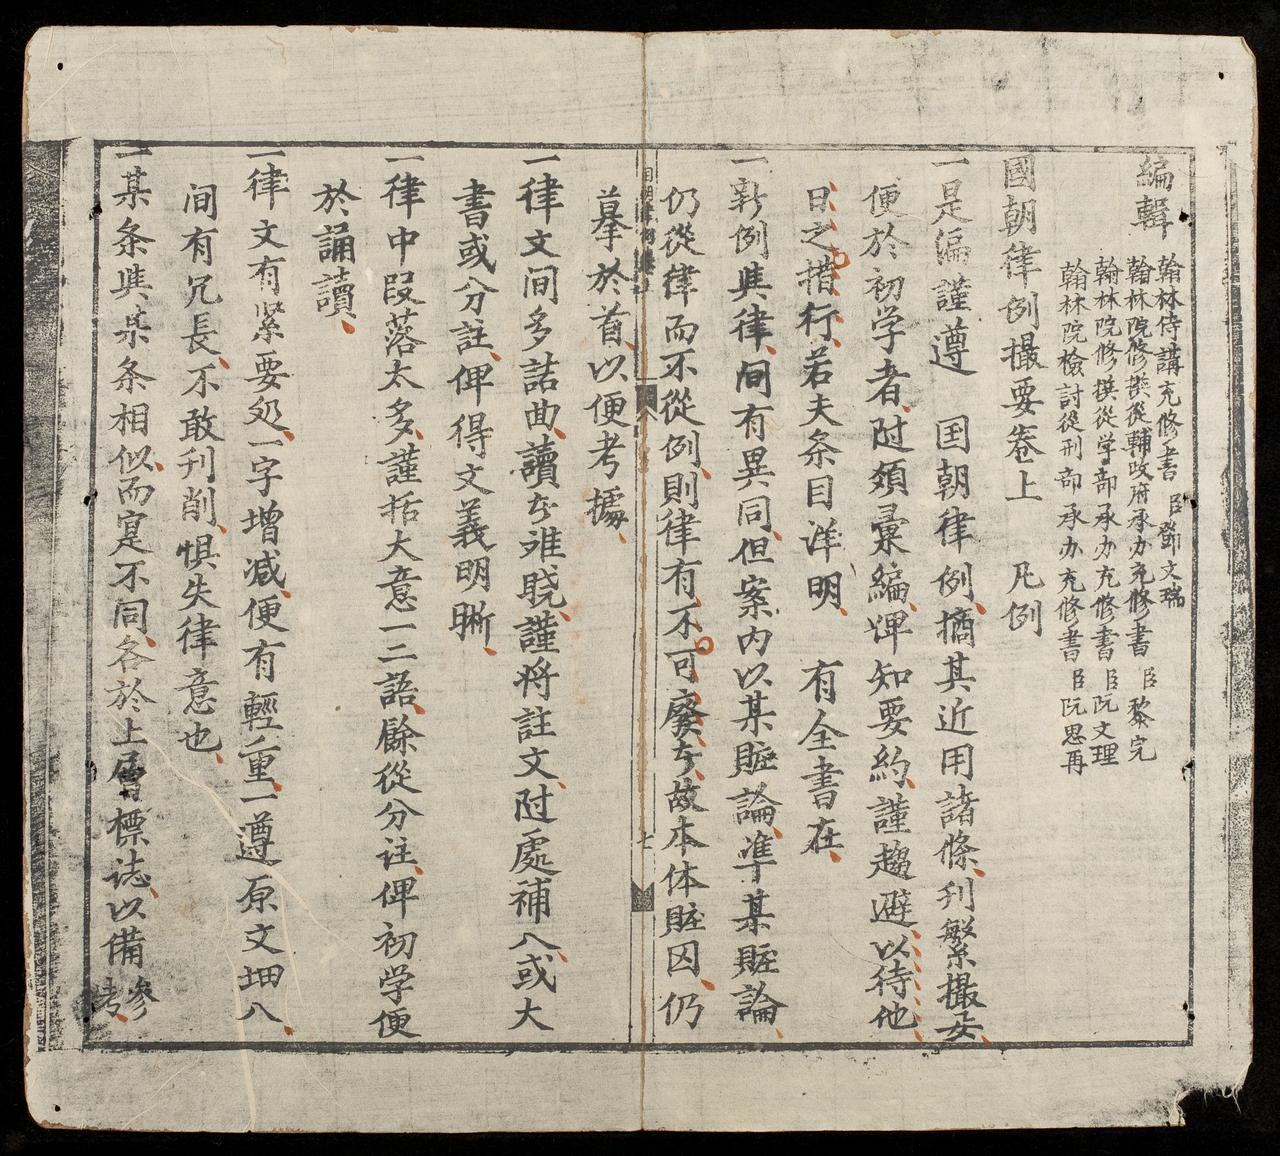 編輯
翰林侍講充修書臣鄧文瑞
翰林院修撰從輔政府承办充修書臣黎完
翰林院修撰從学部承办充修書臣阮文理
翰林院檢討從刑部承办充修書臣阮思再
國朝律例撮要卷上 凡例
一是編謹遵 国朝律例摘其近用諸條刊繁撮要
便於初学者附類彙編俾知要約謹趨避以待他
日之措行若夫条目洋明 有全書在
一新例與律间有異同但案内以某賍論準某賍論
仍從律而不從例則律有不可廢者故本体賍囚仍
摹於首以便考據
一律文间多詰曲讀者难晓謹将註文附處補入或大
書或分註俾得文義明晰
一律中段落太多謹括大意一二語餘從分註俾初学便
於誦讀
一律文有緊要処一字增减便有輕重一遵原文㘱入
间有冗長不敢刊削惧失律意也
一某条與某条相似而寔不同各於上層標誌以備參考